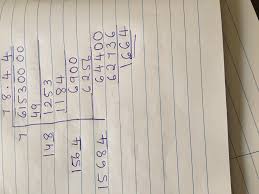 7 8 . 4 4
7 61530000
49
148 1253
1184
1564 6900
6256
15684 64400
62736
1664